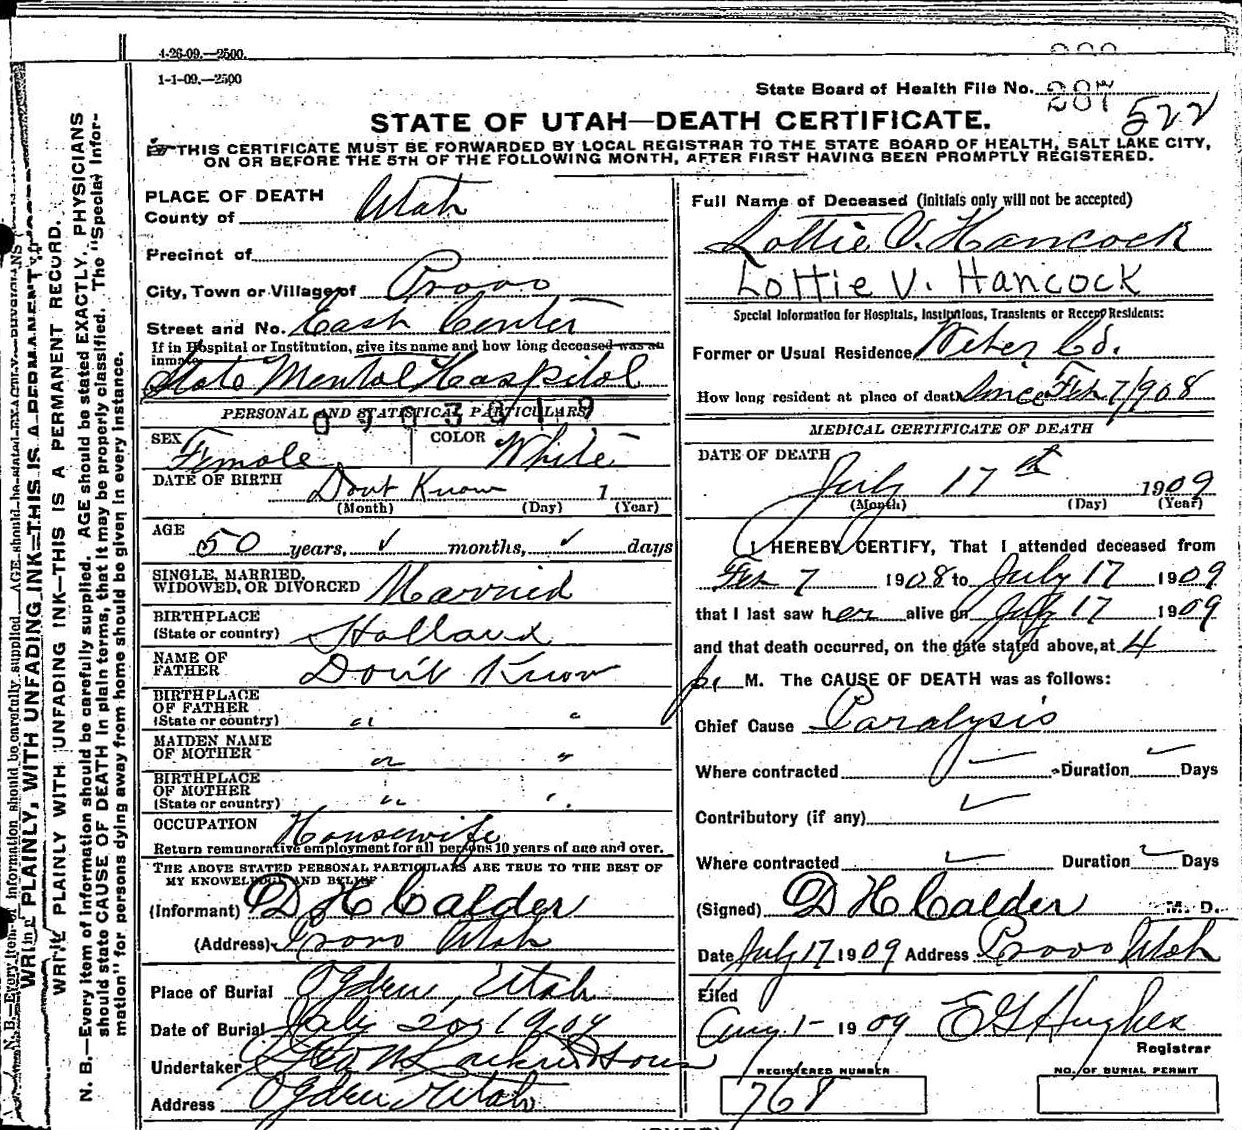 4-26-09.—2500.
1-1-09.—2500
State Board of Health File No. 207
522
STATE OF UTAH—DEATH CERTIFICATE.
THIS CERTIFICATE MUST BE FORWARDED BY LOCAL REGISTRAR TO THE STATE BOARD OF HEALTH, SALT LAKE CITY,
ON OR BEFORE THE 5TH OF THE FOLLOWING MONTH, AFTER FIRST HAVING BEEN PROMPTLY REGISTERED.
WRITE PLAINLY WITH UNFADING INK—THIS IS A PERMANENT RECORD.
N. B.—Every item of information should be carefully supplied. AGE should be stated EXACTLY. PHYSICIANS
should state CAUSE OF DEATH in plain terms, that it may be properly classified. The "Special Infor-
mation" for persons dying away from home should be given in every instance.
PLACE OF DEATH
County of Utah
Precinct of
City, Town or Village of Provo
Street and No. East Center
If in Hospital or Institution, give its name and how long deceased was an
inmate
State Mental Hospital
PERSONAL AND STATISTICAL PARTICULARS
0703019
SEX Female COLOR White
DATE OF BIRTH Dont Know 1
(Month) (Day) (Year)
AGE 50 years, ✓ months, ✓ days
SINGLE, MARRIED,
WIDOWED, OR DIVORCED Married
BIRTHPLACE
(State or country) Holland
NAME OF
FATHER Don't Know
BIRTHPLACE
OF FATHER
(State or country) " "
MAIDEN NAME
OF MOTHER " "
BIRTHPLACE
OF MOTHER
(State or country) " "
OCCUPATION Housewife
Return remunerative employment for all persons 10 years of age and over.
THE ABOVE STATED PERSONAL PARTICULARS ARE TRUE TO THE BEST OF
MY KNOWLEDGE AND BELIEF
(Informant) D H Calder
(Address) Provo Utah
Place of Burial Ogden, Utah
Date of Burial July 20, 1909
Undertaker Geo W Larkin & Sons
Address Ogden Utah
Full Name of Deceased (initials only will not be accepted)
Lottie V. Hancock
Lottie V. Hancock
Special Information for Hospitals, Institutions, Transients or Recent Residents:
Former or Usual Residence Weber Co.
How long resident at place of death Since Feb 7/908
MEDICAL CERTIFICATE OF DEATH
DATE OF DEATH
July 17th 1909
(Month) (Day) (Year)
I HEREBY CERTIFY, That I attended deceased from
Feb 7 1908 to July 17 1909
that I last saw her alive on July 17 1909
and that death occurred, on the date stated above, at 4
p. M. The CAUSE OF DEATH was as follows:
Chief Cause Paralysis
Where contracted — Duration ✓ Days
Contributory (if any) ✓
Where contracted ✓ Duration ✓ Days
(Signed) D H Calder M. D.
Date July 17 1909 Address Provo Utah
Filed
Aug 1- 1909 E G Hughes
Registrar
REGISTERED NUMBER
768
NO. OF BURIAL PERMIT